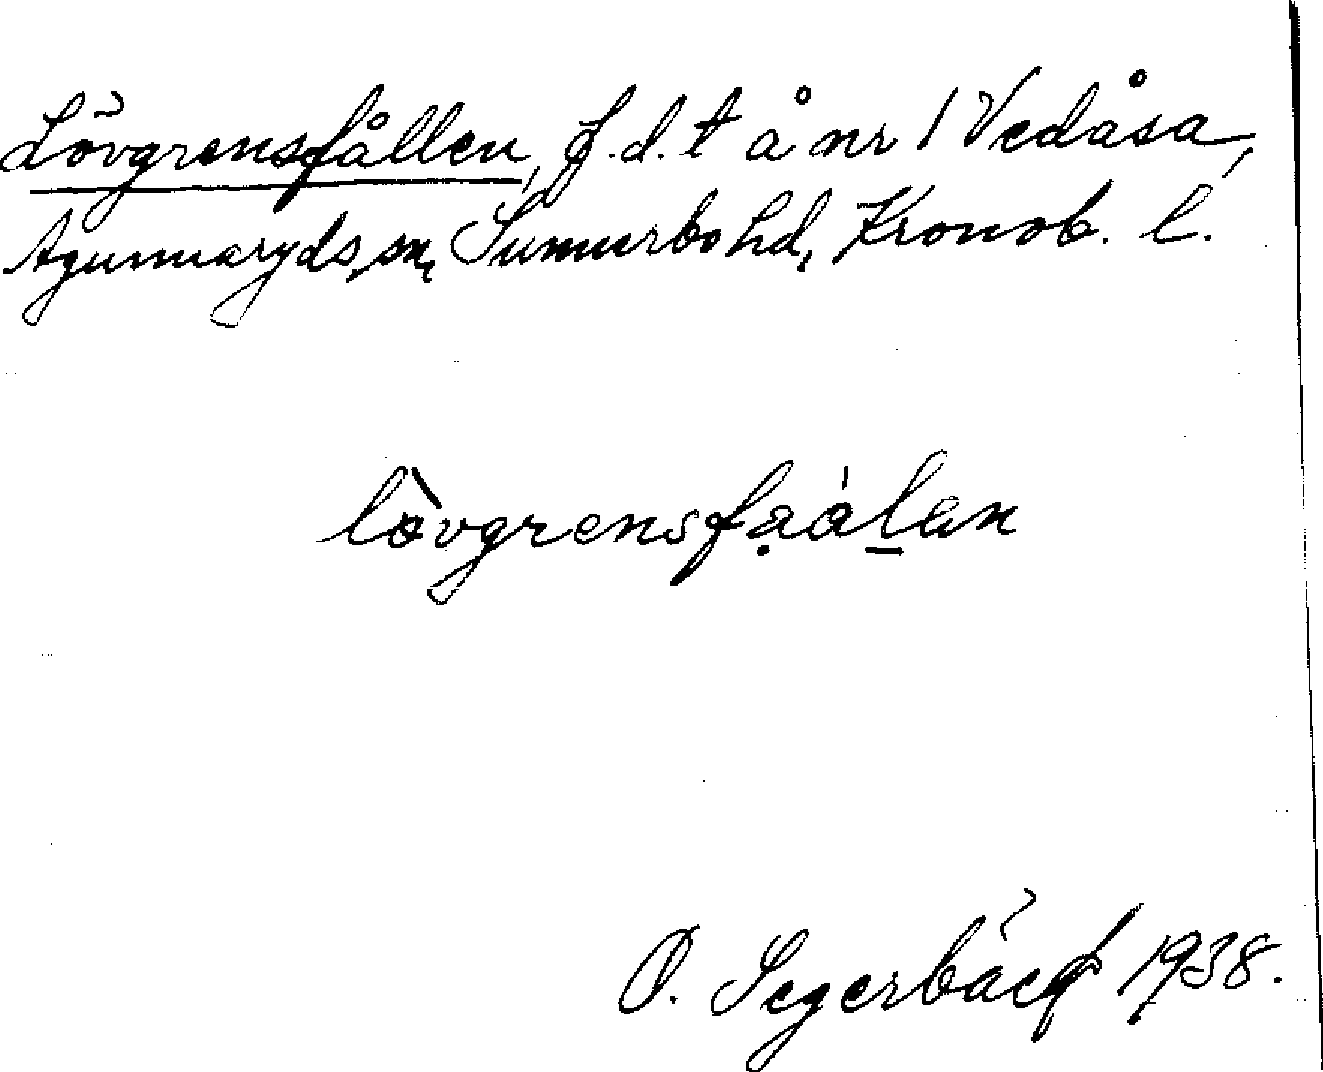 Lövgrensfållen, f.d. t å nr 1 Vedåsa,
Agunnaryds sn, Sunnerbo hd, Kronob. l.
lòvgrensfạálan
O. Segerbäck 1938.